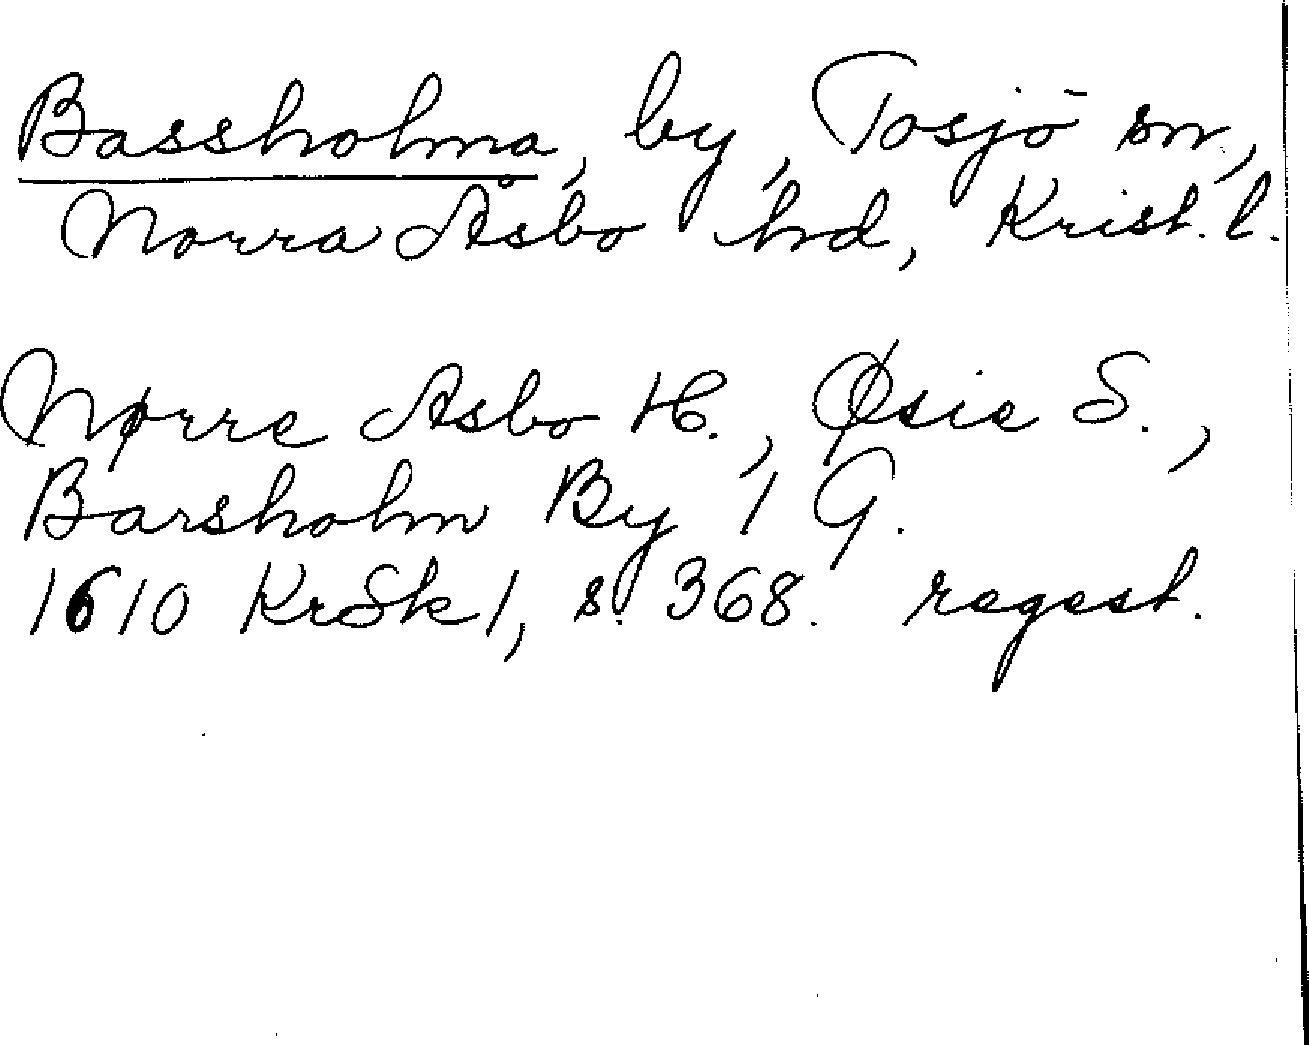 Bassholma, by, Tosjö sn,
Norra Åsbo hd, Krist. l.
Nørre Asbo H., Øsie S.,
Barsholm By 1 G.
1610 KrSk1, s. 368. regest.